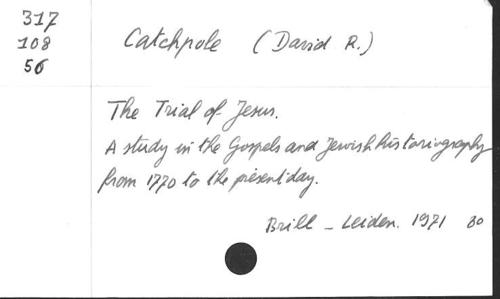 317
108
56
Catchpole (David R.)
The Trial of Jesus.
A study in the Gospels and Jewish historiography
from 1770 to the present day.
Brill - Leiden. 1971 80